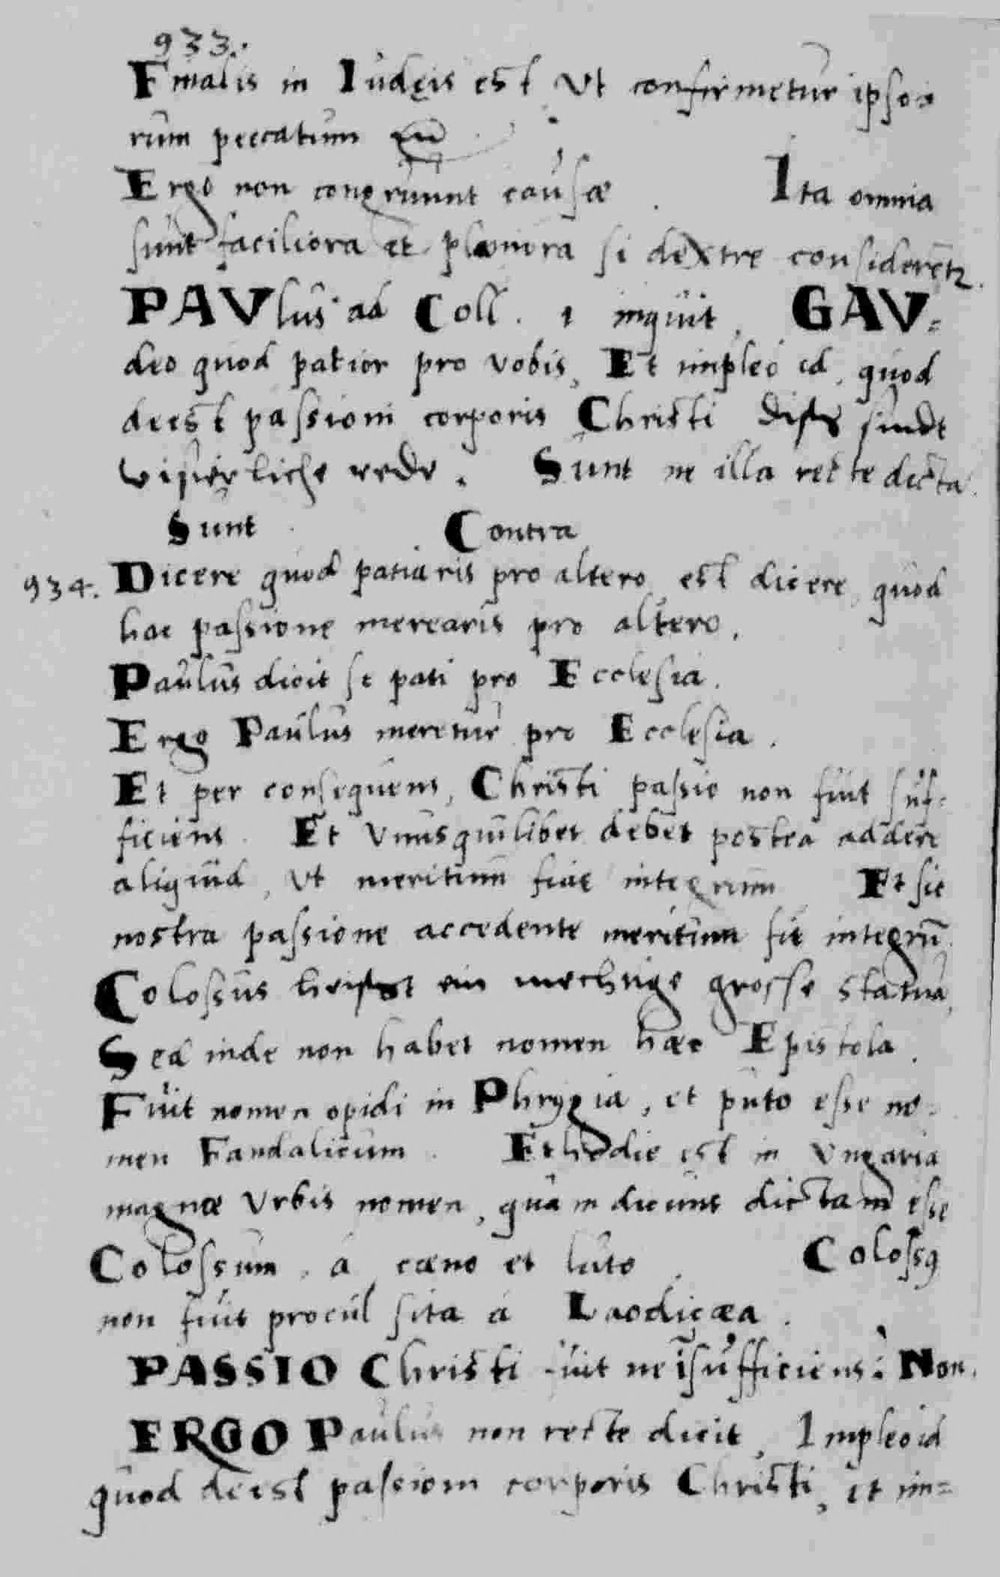 933.
Finalis in Iudęis est Vt confirmetur ipso=
rum peccatum
Ergo non congruunt causæ . Ita omnia
sunt faciliora et planiora si dextre considerentr.
PAVlus ad Coll. 1 inquit, GAV=
deo quod patior pro vobis, Et impleo id, quod
deest passioni corporis Christi diss sindt
visierliche rede. Sunt ne illa recte dicta.
Sunt . Contra
934. Dicere quod patiaris pro altero, est dicere, quod
hac passione merearis pro altero.
Paulus dicit se pati pro Ecclesia.
Ergo Paulus meretur pro Ecclesia.
Et per consequens, Christi passio non fuit suf=
ficiens. Et Vnusquilibet debet postea addere
aliquid, Vt meritum fiat integrum Et sic
nostra passione accedente meritum fit integrū.
Colossus heisst ein mechtige grosse statua,
Sed inde non habet nomen hæc Epistola.
Fuit nomen opidi in Phrygia, et puto esse no=
men Fandalicum. Et hodie est in Vngaria
magnæ Vrbis nomen, quam dicunt dictam esse
Colossum, á cæno et luto. Coloss9
non fuit procul sita á Laodicæa.
PASSIO Christi fuit ne īsufficiens: Non.
ERGO Paulus non recte dicit, Impleo id
quod deest passioni corporis Christi, et im=